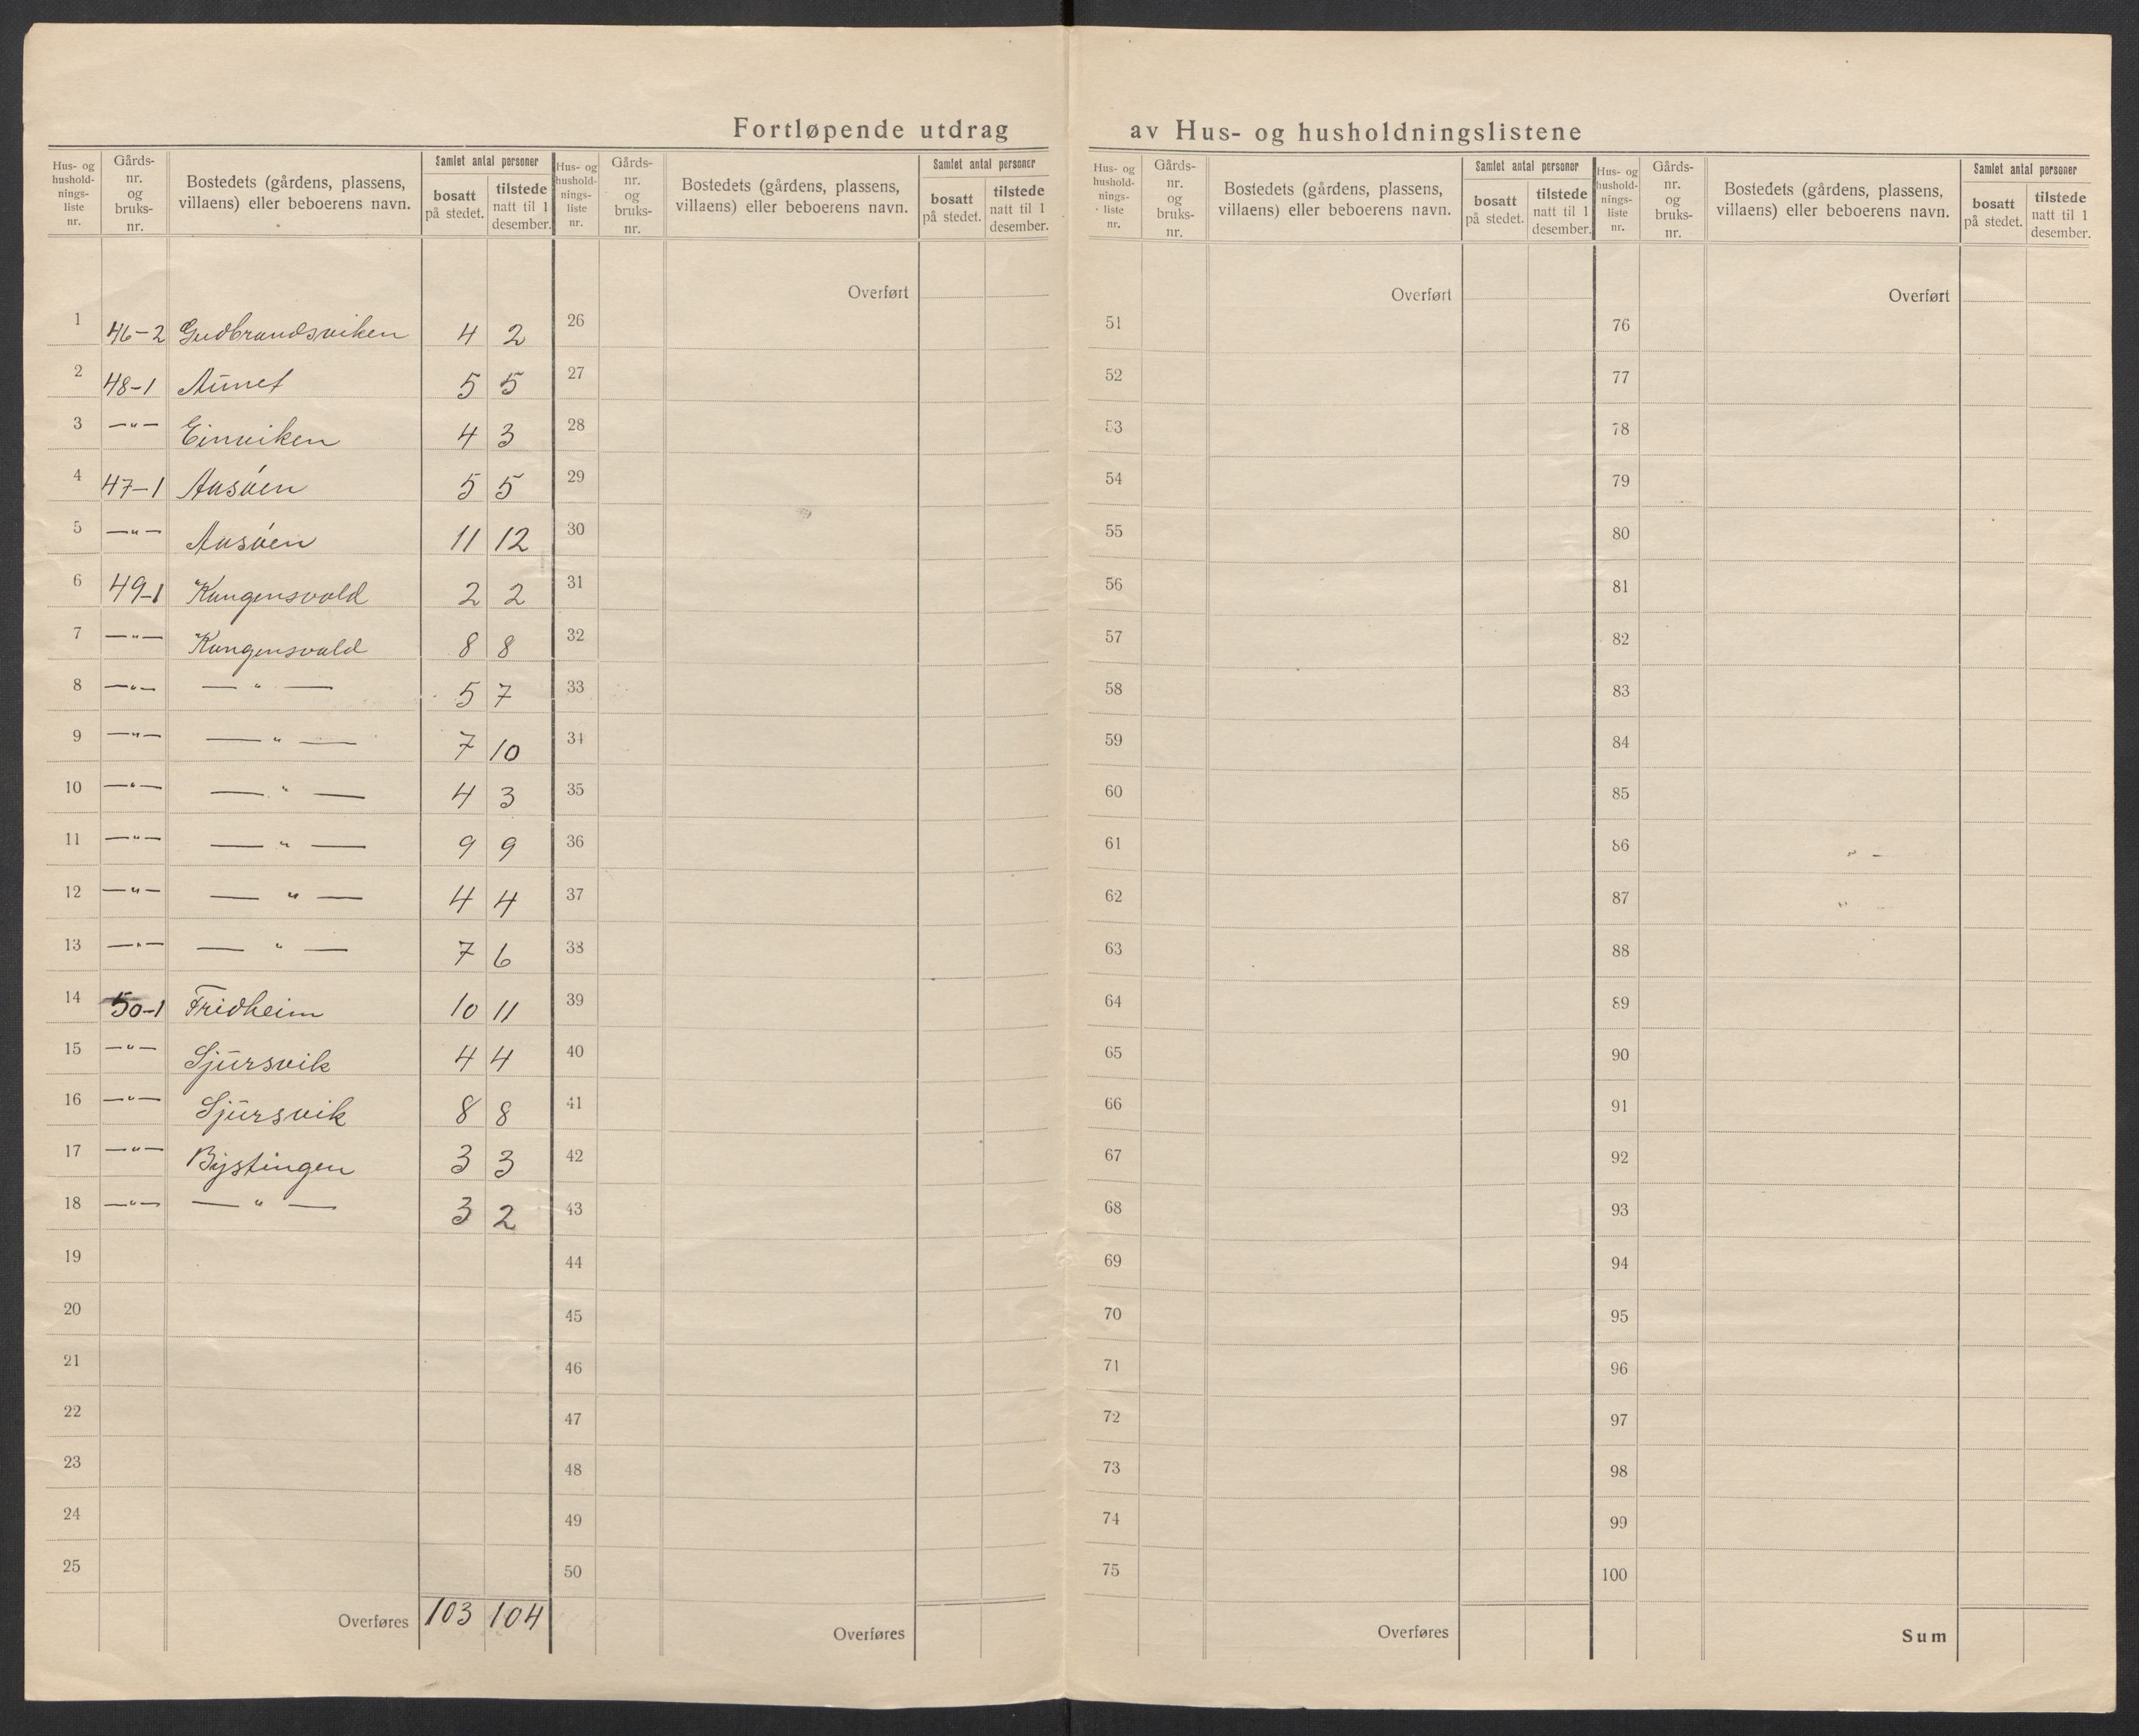 Fortløpende utdrag av Hus- og husholdningslistene
Hus- og hushold- nings- liste nr. | Gårds- nr. og bruks- nr. | Bostedets (gårdens, plassens, villaens) eller beboerens navn. | Samlet antal personer | bosatt på stedet. | tilstede natt til 1 desember.
Hus- og hushold- nings- liste nr. | Gårds- nr. og bruks- nr. | Bostedets (gårdens, plassens, villaens) eller beboerens navn. | Samlet antal personer | bosatt på stedet. | tilstede natt til 1 desember.
Hus- og hushold- nings- liste nr. | Gårds- nr. og bruks- nr. | Bostedets (gårdens, plassens, villaens) eller beboerens navn. | Samlet antal personer | bosatt på stedet. | tilstede natt til 1 desember.
Hus- og hushold- nings- liste nr. | Gårds- nr. og bruks- nr. | Bostedets (gårdens, plassens, villaens) eller beboerens navn. | Samlet antal personer | bosatt på stedet. | tilstede natt til 1 desember.
Overført | Overført | Overført
1 | 46-2 | Gudbrandsviken | 4 | 2 | 26 | 51 | 76
2 | 48-1 | Aunet | 5 | 5 | 27 | 52 | 77
3 | —"— | Einviken | 4 | 3 | 28 | 53 | 78
4 | 47-1 | Aasöen | 5 | 5 | 29 | 54 | 79
5 | —"— | Aasöen | 11 | 12 | 30 | 55 | 80
6 | 49-1 | Kongensvold | 2 | 2 | 31 | 56 | 81
7 | —"— | Kongensvold | 8 | 8 | 32 | 57 | 82
8 | —"— | —"— | 5 | 7 | 33 | 58 | 83
9 | —"— | —"— | 7 | 10 | 34 | 59 | 84
10 | —"— | —"— | 4 | 3 | 35 | 60 | 85
11 | —"— | —"— | 9 | 9 | 36 | 61 | 86
12 | —"— | —"— | 4 | 4 | 37 | 62 | 87
13 | —"— | —"— | 7 | 6 | 38 | 63 | 88
14 | 50-1 | Fridheim | 10 | 11 | 39 | 64 | 89
15 | —"— | Sjursvik | 4 | 4 | 40 | 65 | 90
16 | —"— | Sjursvik | 8 | 8 | 41 | 66 | 91
17 | —"— | Bystingen | 3 | 3 | 42 | 67 | 92
18 | —"— | —"— | 3 | 2 | 43 | 68 | 93
19 | 44 | 69 | 94
20 | 45 | 70 | 95
21 | 46 | 71 | 96
22 | 47 | 72 | 97
23 | 48 | 73 | 98
24 | 49 | 74 | 99
25 | 50 | 75 | 100
Overføres | 103 | 104 | Overføres | Overføres | Sum